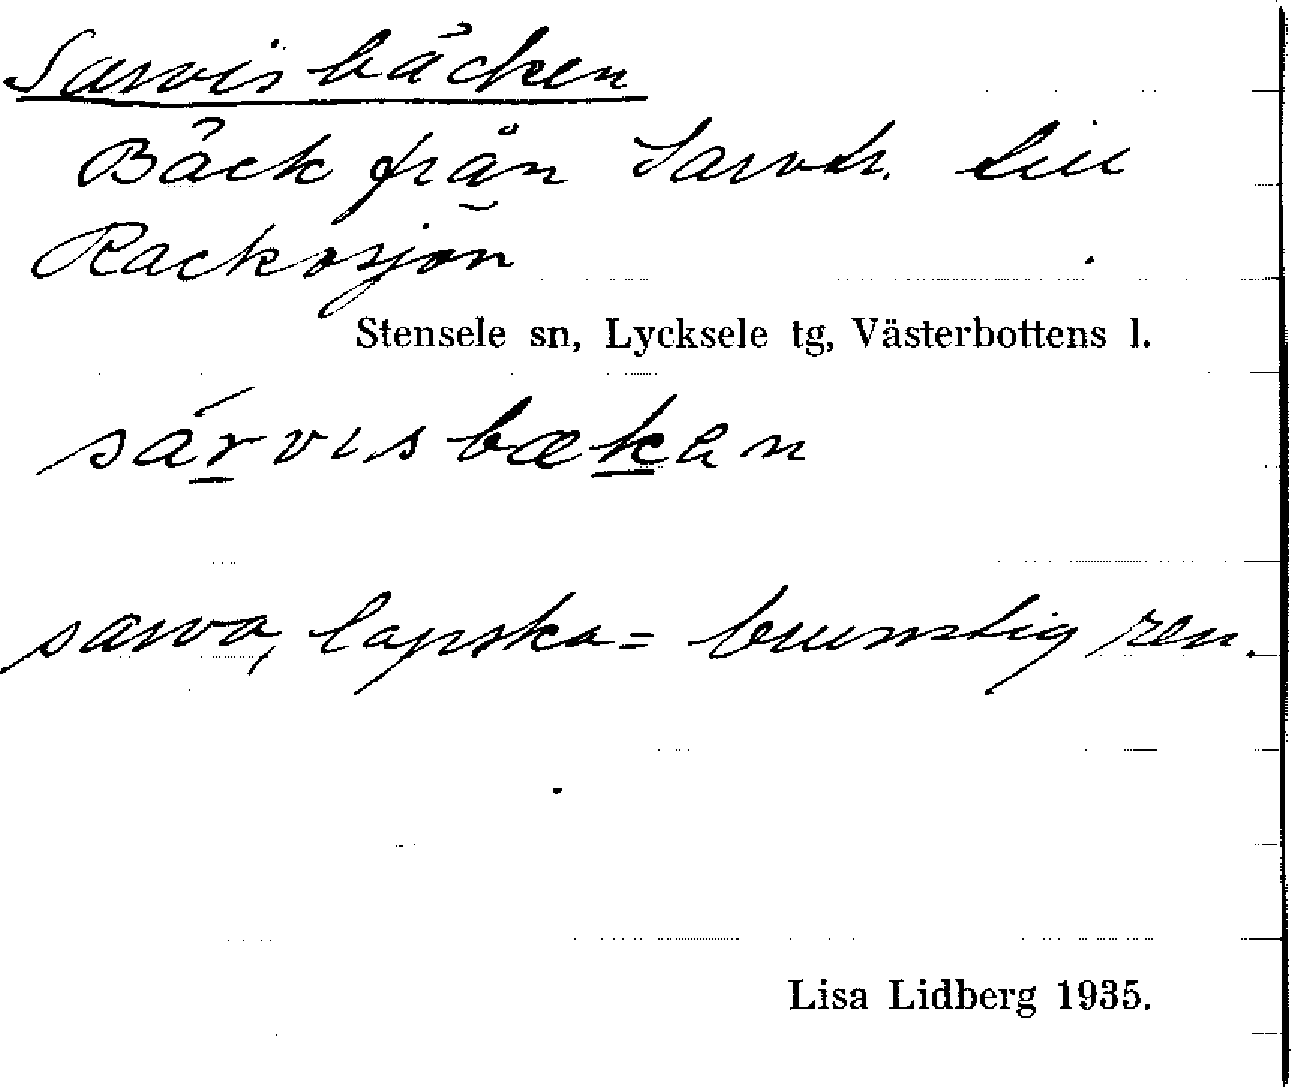 Sarvisbäcken
Bäck från Sarvtr. till
Rackosjön
Stensele sn, Lycksele tg, Västerbottens l.
sárvisbækan
sarva, lapska = brunstig ren.
Lisa Lidberg 1935.